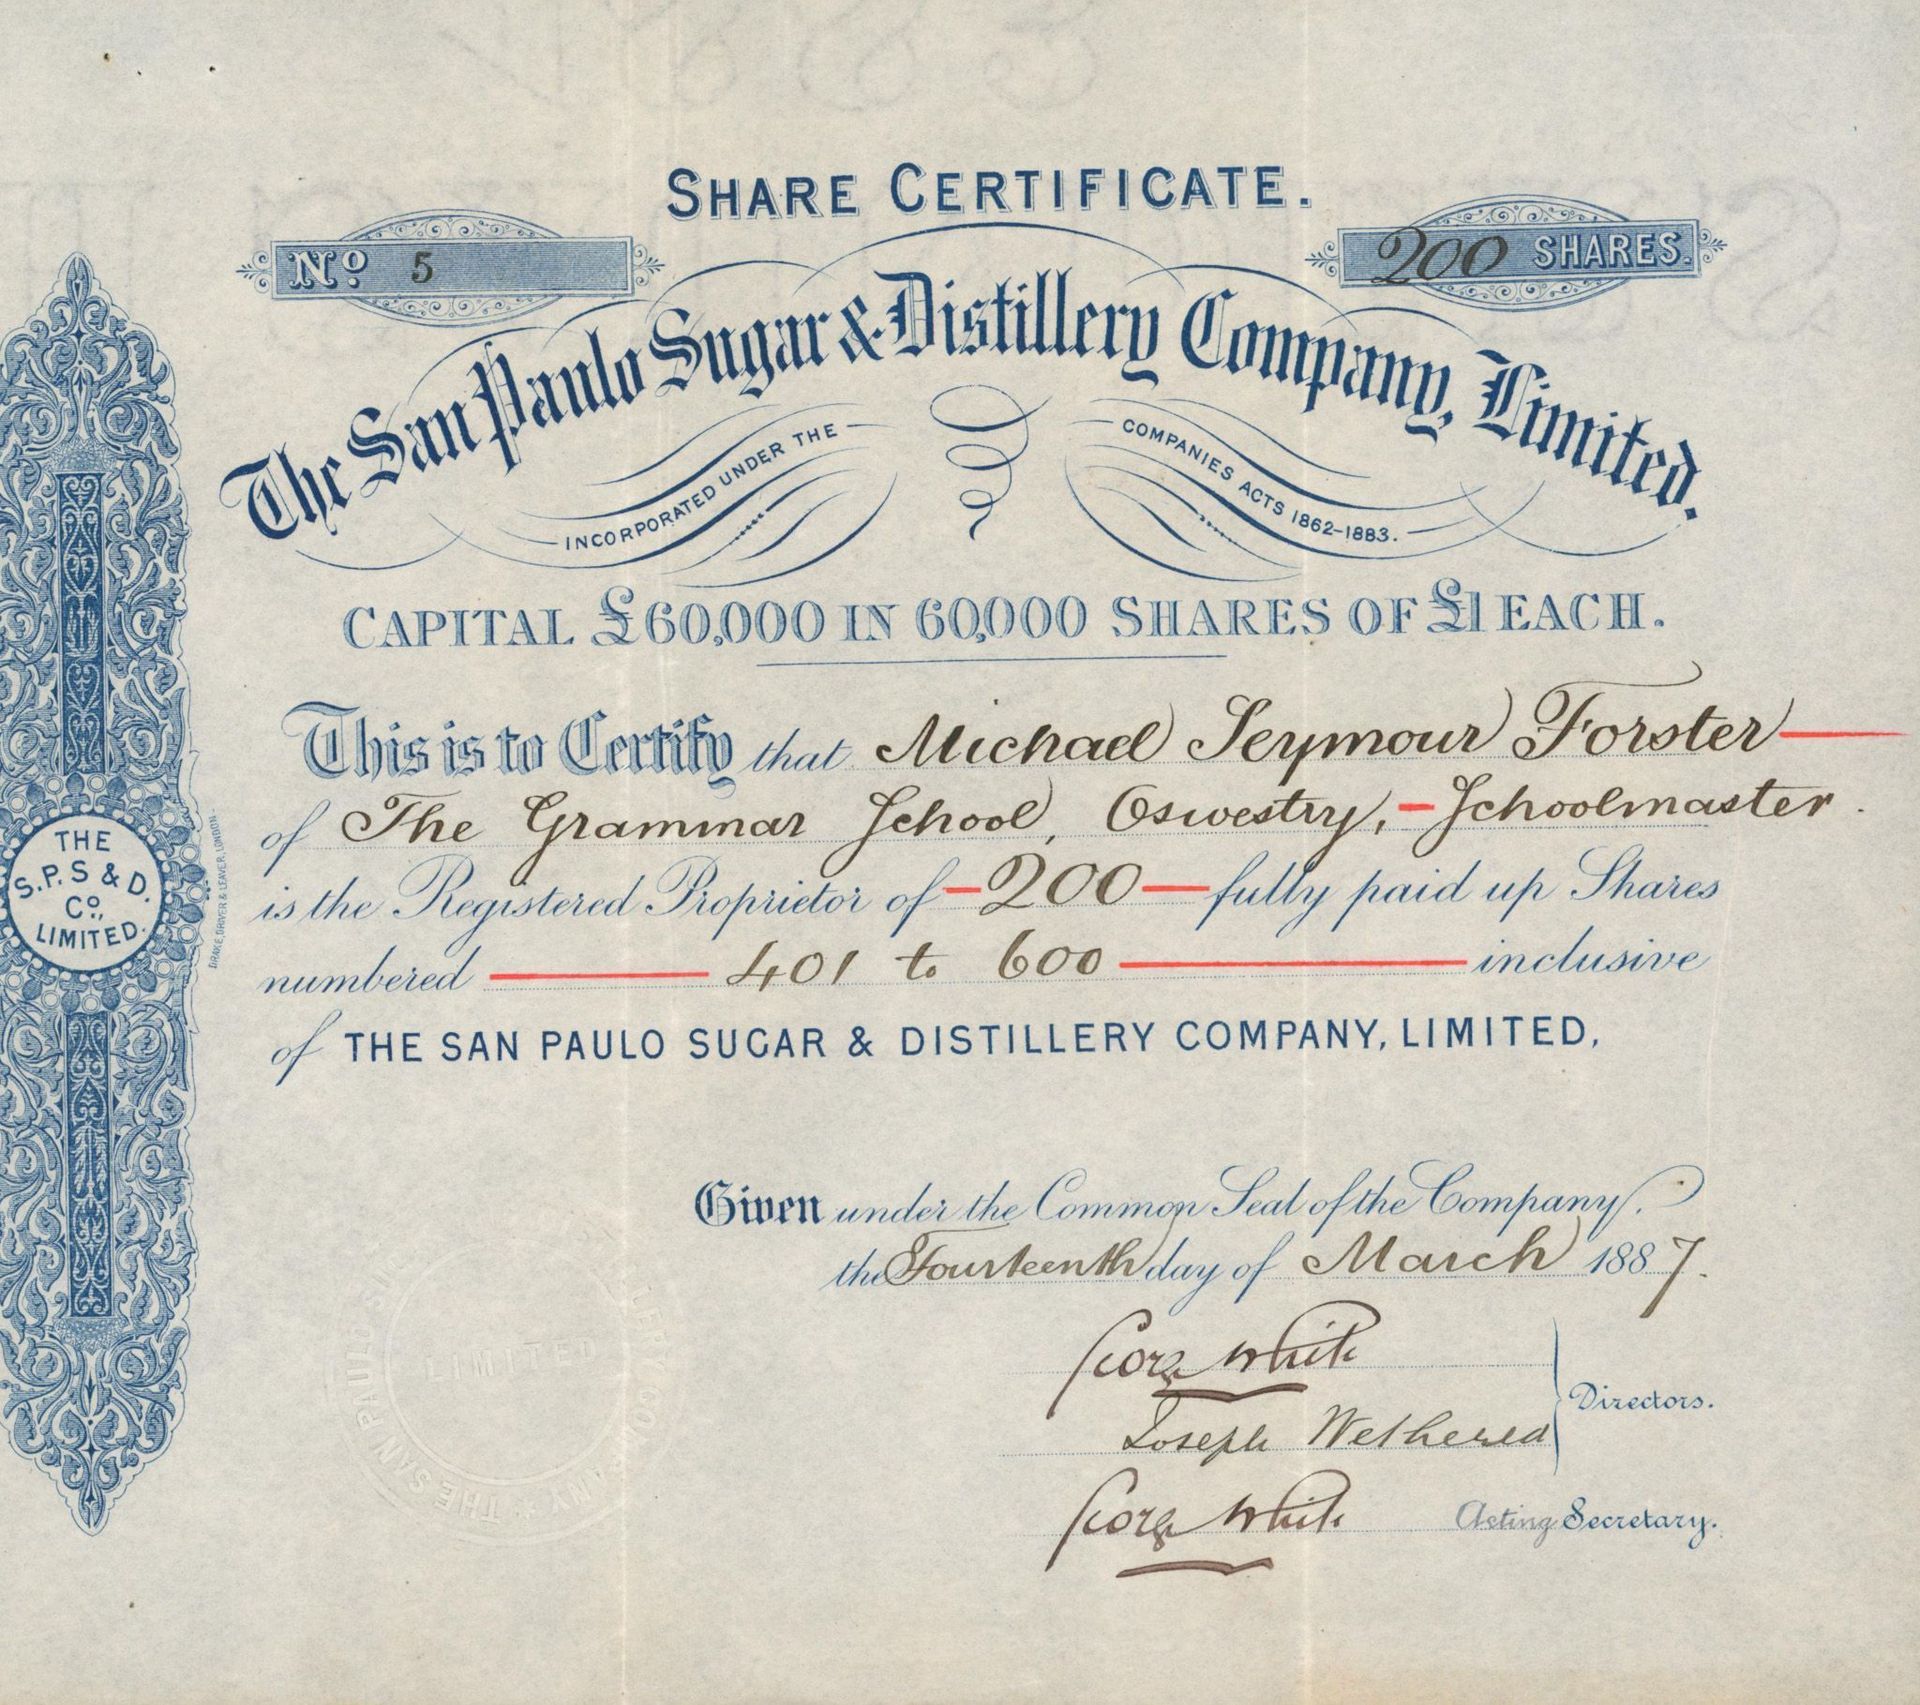 SHARE CERTIFICATE.
No 5
200 SHARES.
The San Paulo Sugar & Distillery Company, Limited.
INCORPORATED UNDER THE COMPANIES ACTS 1862-1883.
CAPITAL £60,000 IN 60,000 SHARES OF £1 EACH.
This is to Certify that Michael Seymour Forster
of The Grammar School, Oswestry, - Schoolmaster.
is the Registered Proprietor of - 200 - fully paid up Shares
numbered 401 to 600 inclusive
of THE SAN PAULO SUGAR & DISTILLERY COMPANY, LIMITED,
Given under the Common Seal of the Company,
the Fourteenth day of March 1887.
George White
Joseph Wethered
Directors.
George White Acting Secretary.
THE
S.P.S & D.
Co.,
LIMITED.
DRAKE, DRIVER & LEAVER, LONDON.
THE SAN PAULO S
LERY COMPANY
LIMITED